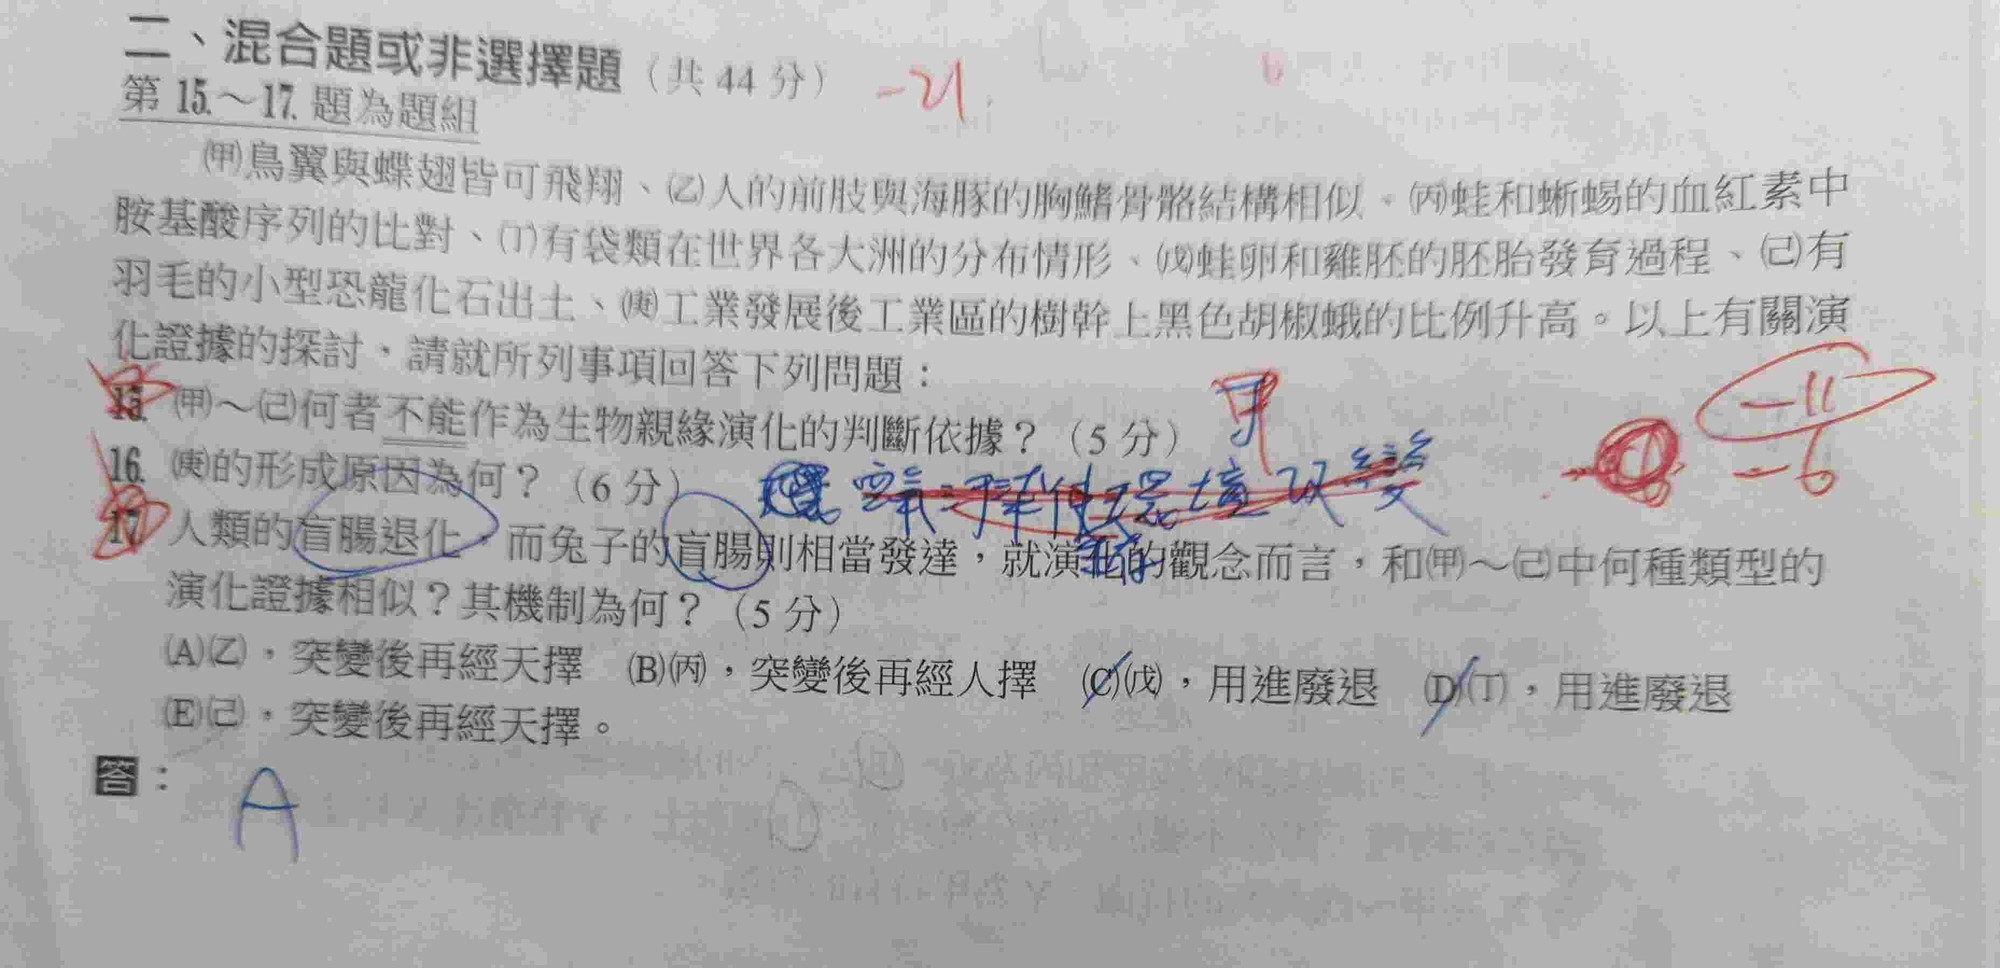 二、混合題或非選擇題（共 44 分） -21
第 15.～17. 題為題組
㈙鳥翼與蝶翅皆可飛翔、㈚人的前肢與海豚的胸鰭骨骼結構相似、㈛蛙和蜥蜴的血紅素中
胺基酸序列的比對、㈜有袋類在世界各大洲的分布情形、㈝蛙卵和雞胚的胚胎發育過程、㈞有
羽毛的小型恐龍化石出土、㈟工業發展後工業區的樹幹上黑色胡椒蛾的比例升高。以上有關演
化證據的探討，請就所列事項回答下列問題：
15. (甲)～(己)何者不能作為生物親緣演化的判斷依據？（5 分） 甲 -11
16. (庚)的形成原因為何？（6 分） 環境改變 -6
17. 人類的盲腸退化，而兔子的盲腸則相當發達，就演化的觀念而言，和(甲)～(己)中何種類型的
演化證據相似？其機制為何？（5 分）
(A)(乙)，突變後再經天擇 (B)(丙)，突變後再經人擇 (C)(戊)，用進廢退 (D)(丁)，用進廢退
(E)(己)，突變後再經天擇。
答： A